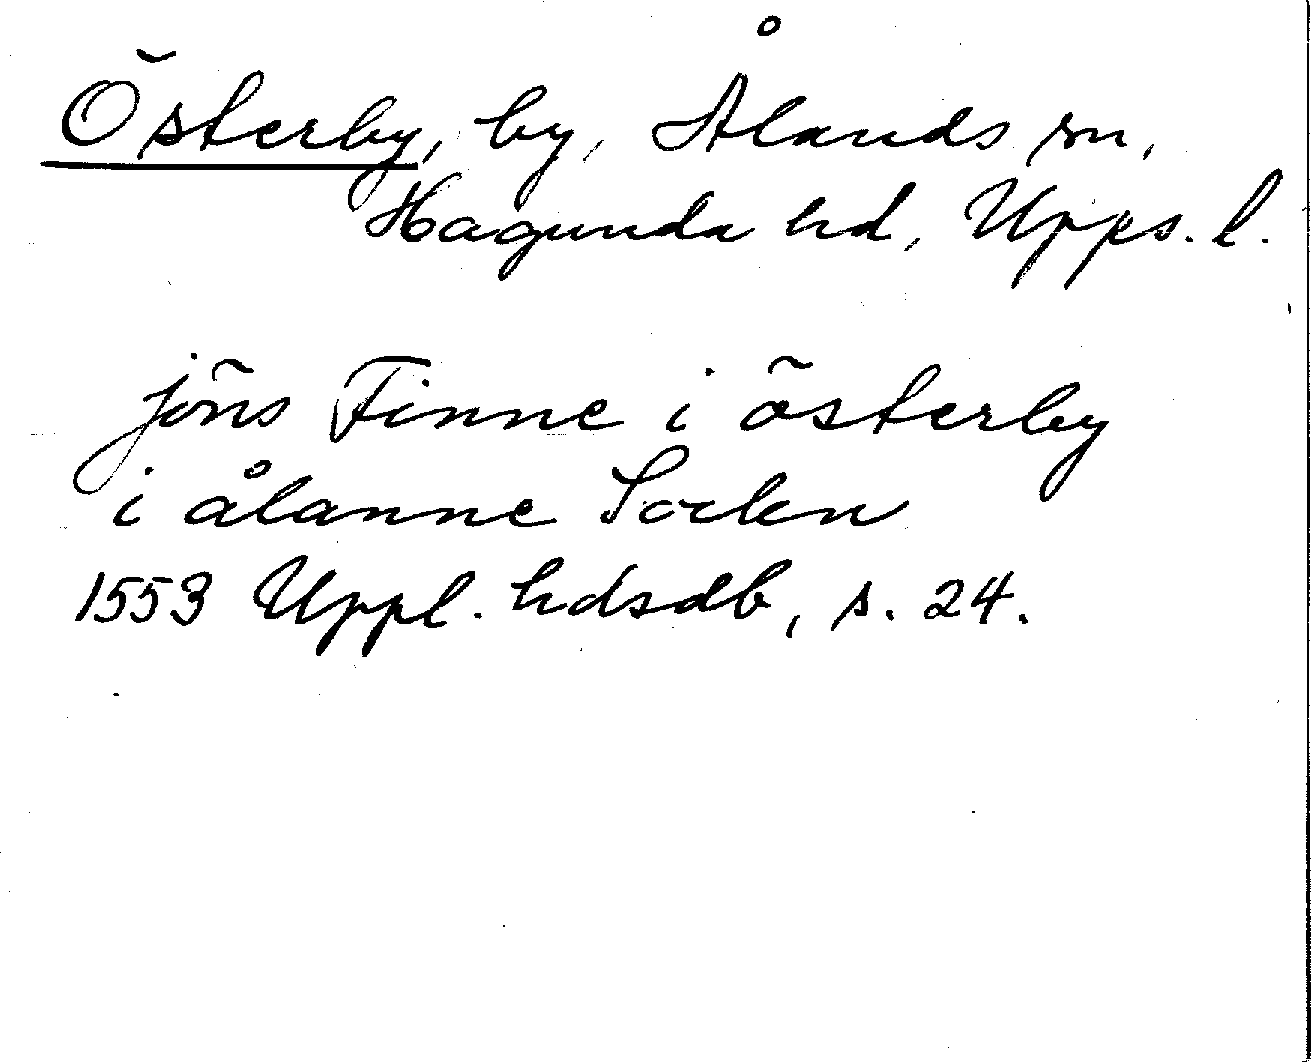 Österby, by, Ålands sn,
Hagunda hd, Upps. l.
jöns Finne i österby
i ålanne Socken
1553 Uppl. hdsdb, s. 24.